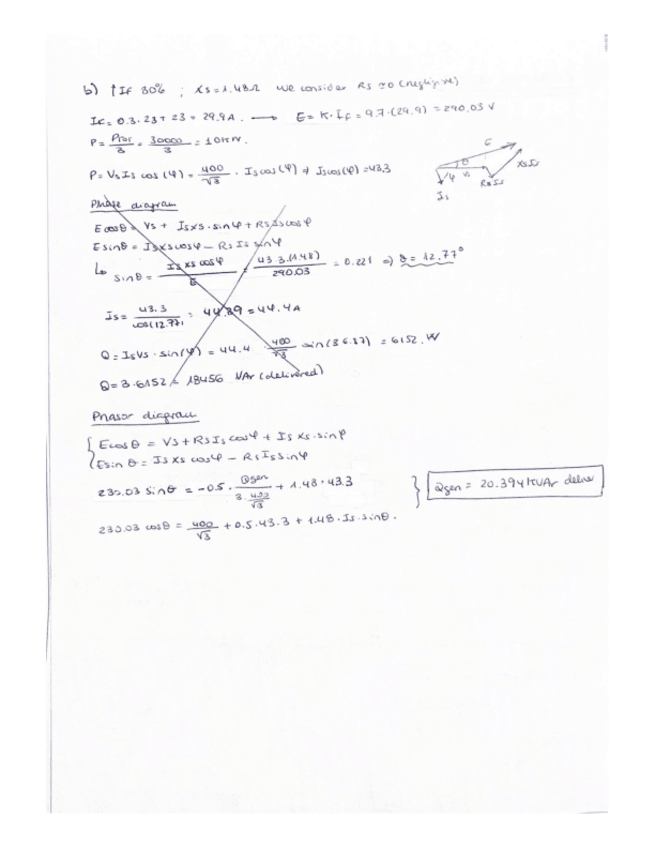 b) ↑ If 30% ; Xs = 1.48Ω We consider Rs ≈ 0 (negligive)
Ic = 0.3 · 23 + 23 = 29.9 A. → E = K · If = 9.7 · (29.9) = 290.03 V
P = Ptot/3 = 30000/3 = 10 kW.
P = Vs Is cos(φ) = 400/√3 · Is cos(φ) ⇒ Is cos(φ) = 43.3
E
θ
φ Vs
Is
Rs Is
Xs Is
Phase diagram
E cosθ = Vs + Is Xs · sinφ + Rs Is cosφ
E sinθ = Is Xs cosφ – Rs Is sinφ
↳ sinθ = Is Xs cosφ / E = 43.3 (1.48) / 290.03 = 0.221 ⇒ θ = 12.77°
Is = 43.3 / cos(12.77) = 44.39 = 44.4 A
Q = Is Vs · sin(φ) = 44.4 · 400/√3 · sin(36.87) = 6152. W
Q = 3 · 6152 = 18456 VAr (delivered)
Phasor diagram
{ E cosθ = Vs + Rs Is cosφ + Is Xs · sinφ
E sin θ = Is Xs cosφ – Rs Is sinφ
230.03 sinθ = -0.5 · Qgen / 3 · 400/√3 + 1.48 · 43.3
} Qgen = 20.394 kVAr
230.03 cosθ = 400/√3 + 0.5 · 43.3 + 1.48 · Is · sinθ.